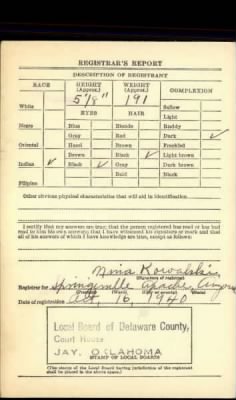 REGISTRAR'S REPORT
DESCRIPTION OF REGISTRANT
RACE HEIGHT (Approx.) WEIGHT (Approx.) COMPLEXION
5'8" 191
White Sallow
EYES HAIR Light
Negro Blue Blonde Ruddy
Gray Red Dark ✓
Oriental Hazel Brown Freckled
Brown Black ✓ Light brown
Indian ✓ Black ✓ Gray Dark brown
Bald Black
Filipino
Other obvious physical characteristics that will aid in identification
I certify that my answers are true; that the person registered has read or has had
read to him his own answers; that I have witnessed his signature or mark and that
all of his answers of which I have knowledge are true, except as follows:
Nina Kowalski
(Signature of registrar)
Registrar for Springerville Apache Arizona
Date of registration Oct. 16, 1940
Local Board of Delaware County,
Court House
JAY, OKLAHOMA
STAMP OF LOCAL BOARD
(The stamp of the Local Board having jurisdiction of the registrant
shall be placed in the above space.)